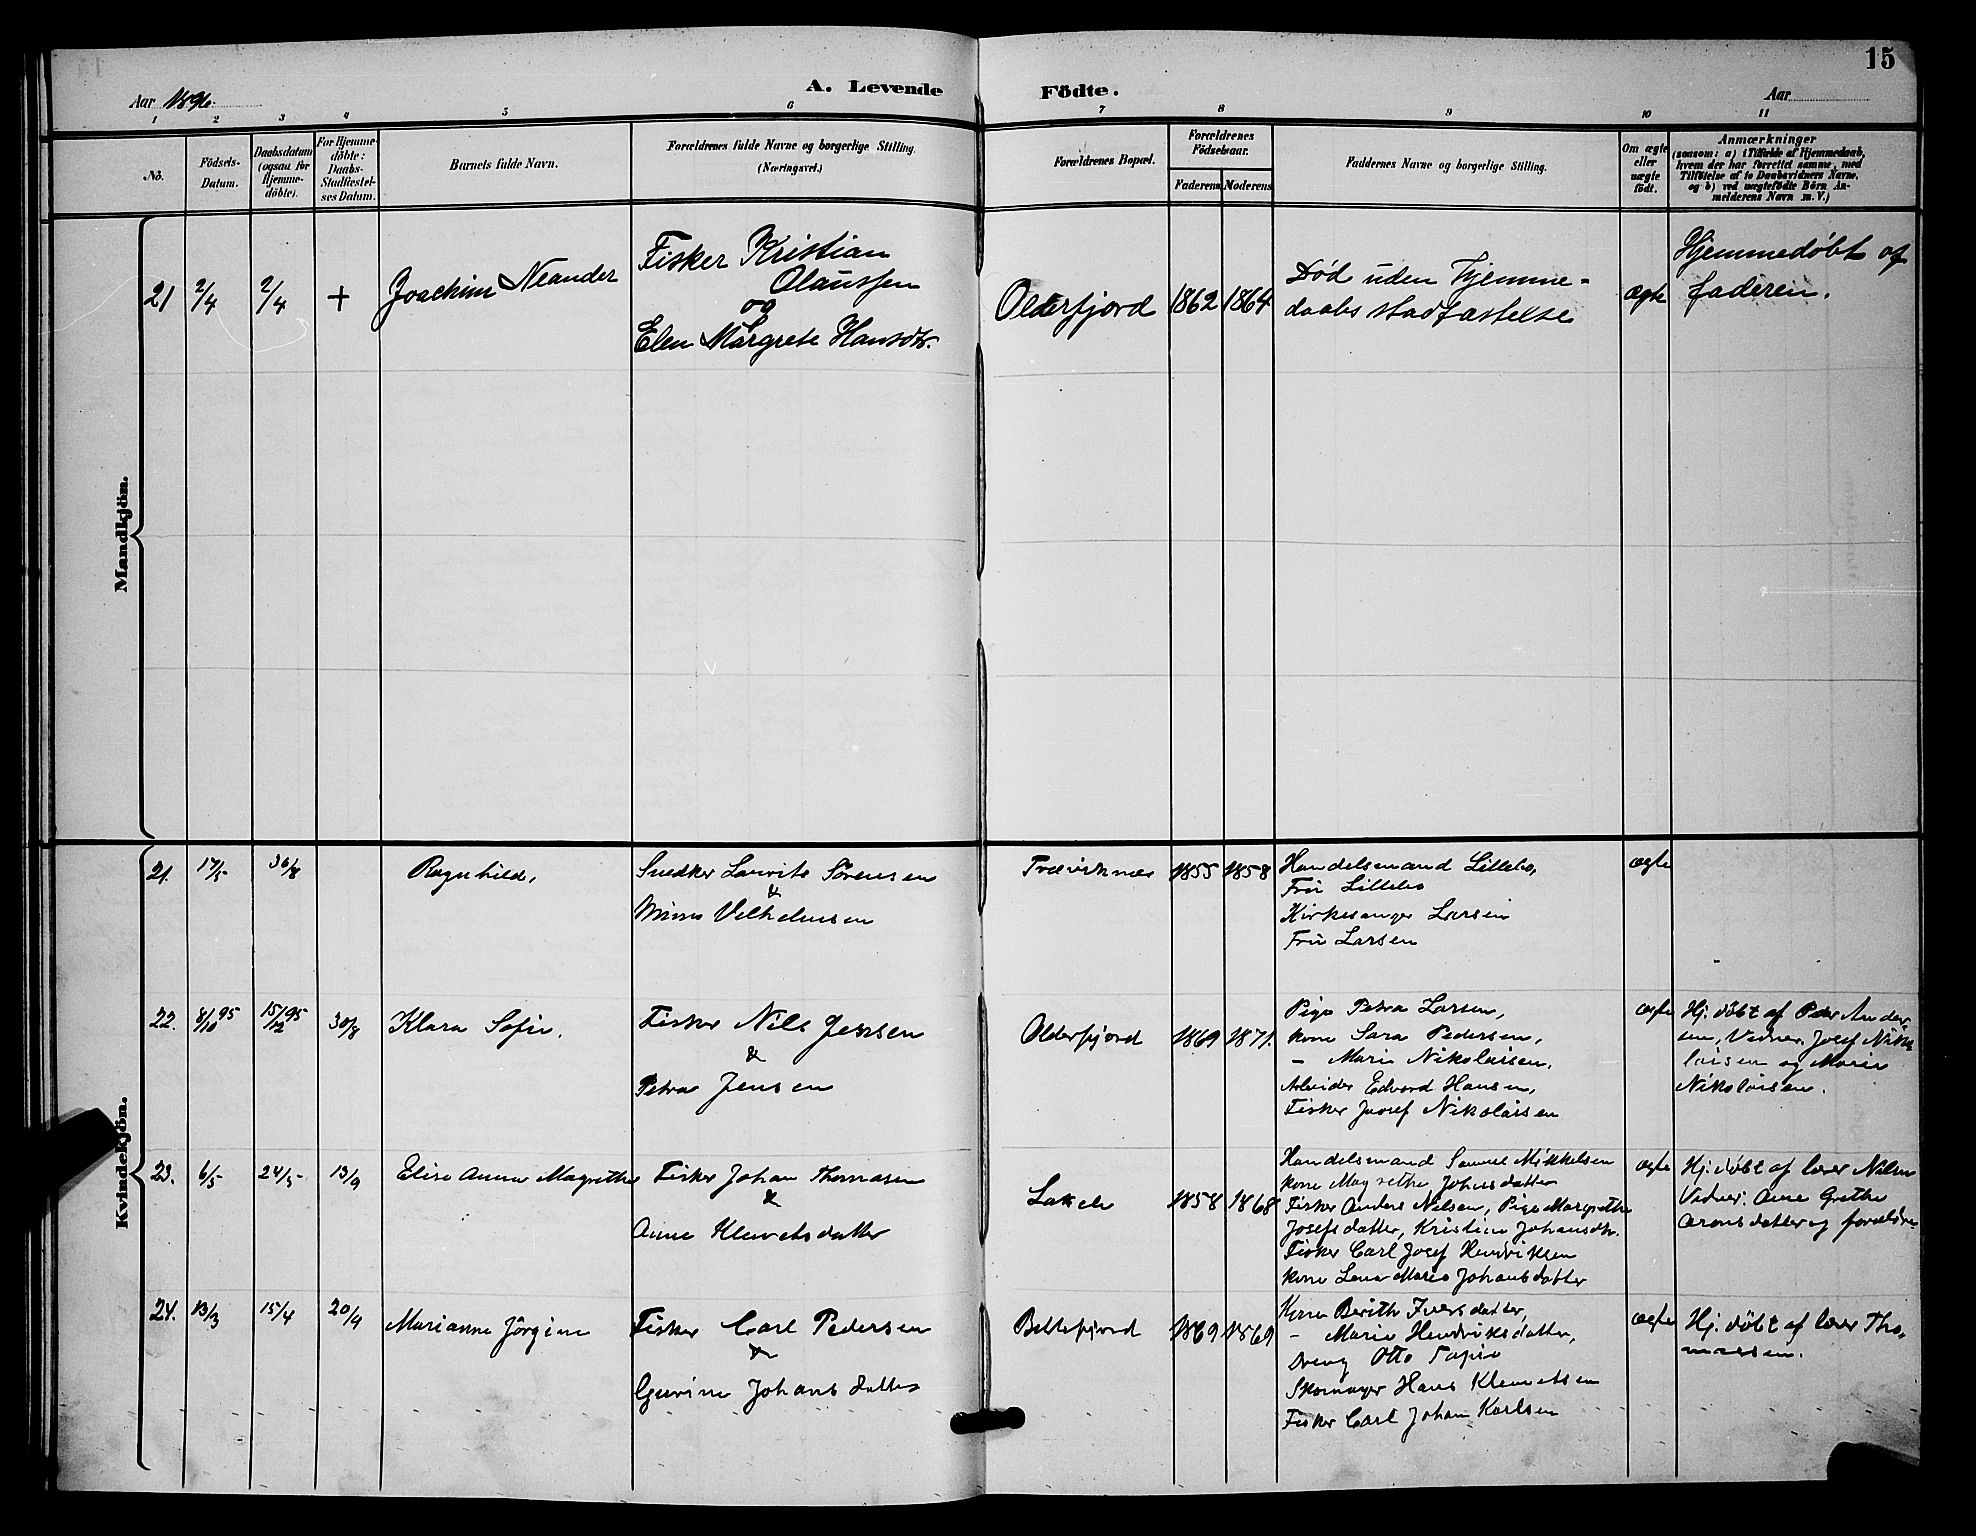 15
Aar 1896.
A. Levende Födte.
Aar
1 2 3 4 5 6 7 8 9 10 11
No.
Födsels-
Datum.
Daabsdatum
(ogsaa for
Hjemme-
döbte).
For Hjemme-
döbte:
Daabs-
Stadfæstel-
ses Datum.
Barnets fulde Navn.
Forældrenes fulde Navne og borgerlige Stilling.
(Næringsvei.)
Forældrenes Bopæl.
Forældrenes
Födselsaar.
Faderens Moderens
Faddernes Navne og borgerlige Stilling.
Om ægte
eller
uægte
födt.
Anmærkninger
(saasom: a) i Tilfælde af Hjemmedaab,
hvem der har forrettet samme, med
Tilföielse af to Daabsvidners Navne,
og b) ved uægtefödte Börn An-
melderens Navn m. V.)
Mandkjön.
21 2/4 2/4 + Joachim Neander
Fisker Kristian
Olaussen
og
Elen Margrete Hansdtr.
Olderfjord 1862 1864
Död uden Hjemme-
daabs stadfæstelse
ægte
Hjemmedøbt af
faderen.
Kvindekjön.
21. 17/5 30/8 Ragnhild,
Snedker Laurits Sörensen
&
Vilhelmsen
1855 1858
Handelsmand Lillebo,
Fru Lillebo
Kirkesanger Larsen
Fru Larsen
ægte
22. 8/10 95 15/12 95 30/8 Klara Sofie.
Fisker Nils Jensen
&
Petra Jensen
Olderfjord 1869 1871.
Pige Petra Larsen,
kone Sara Pedersen,
- Marie Nikolaisen,
Arbeider Edvard Hansen,
Fisker Josef Nikolaisen
ægte
Hj. döbt af Peder Ander-
sen, Vidner, Josef Niko
laisen og Marie
Nikolaisen.
23. 6/5 24/5 13/9 Elise Anna Magrethe
Fisker Johan Thomasen
&
Anne Klemetsdatter
Lakselv 1858 1868
Handelsmand Samuel Mikkelsen
kone Magrethe Johnsdatter
Fisker Anders Nilsen, Pige Margrethe
Josefsdatter, Kristine Johansdtr.
Fisker Carl Josef Henriksen
kone Lena Marie Johansdatter
ægte
Hj. döbt af lærer Nilsen
Vidner: Anne Grethe
Aronsdatter og forældre
24. 13/3 15/4 20/9 Marianne Jörgine
Fisker Carl Pedersen
&
Johansdatter
1869 1869
Kone Berith Iversdatter,
- Marie Hendriksdatter,
Dreng Otto Tapio
Skomager Hans Klemetsen
Fisker Carl Johan Karlsen
ægte
Hj. döbt af lærer Tho-
massen.